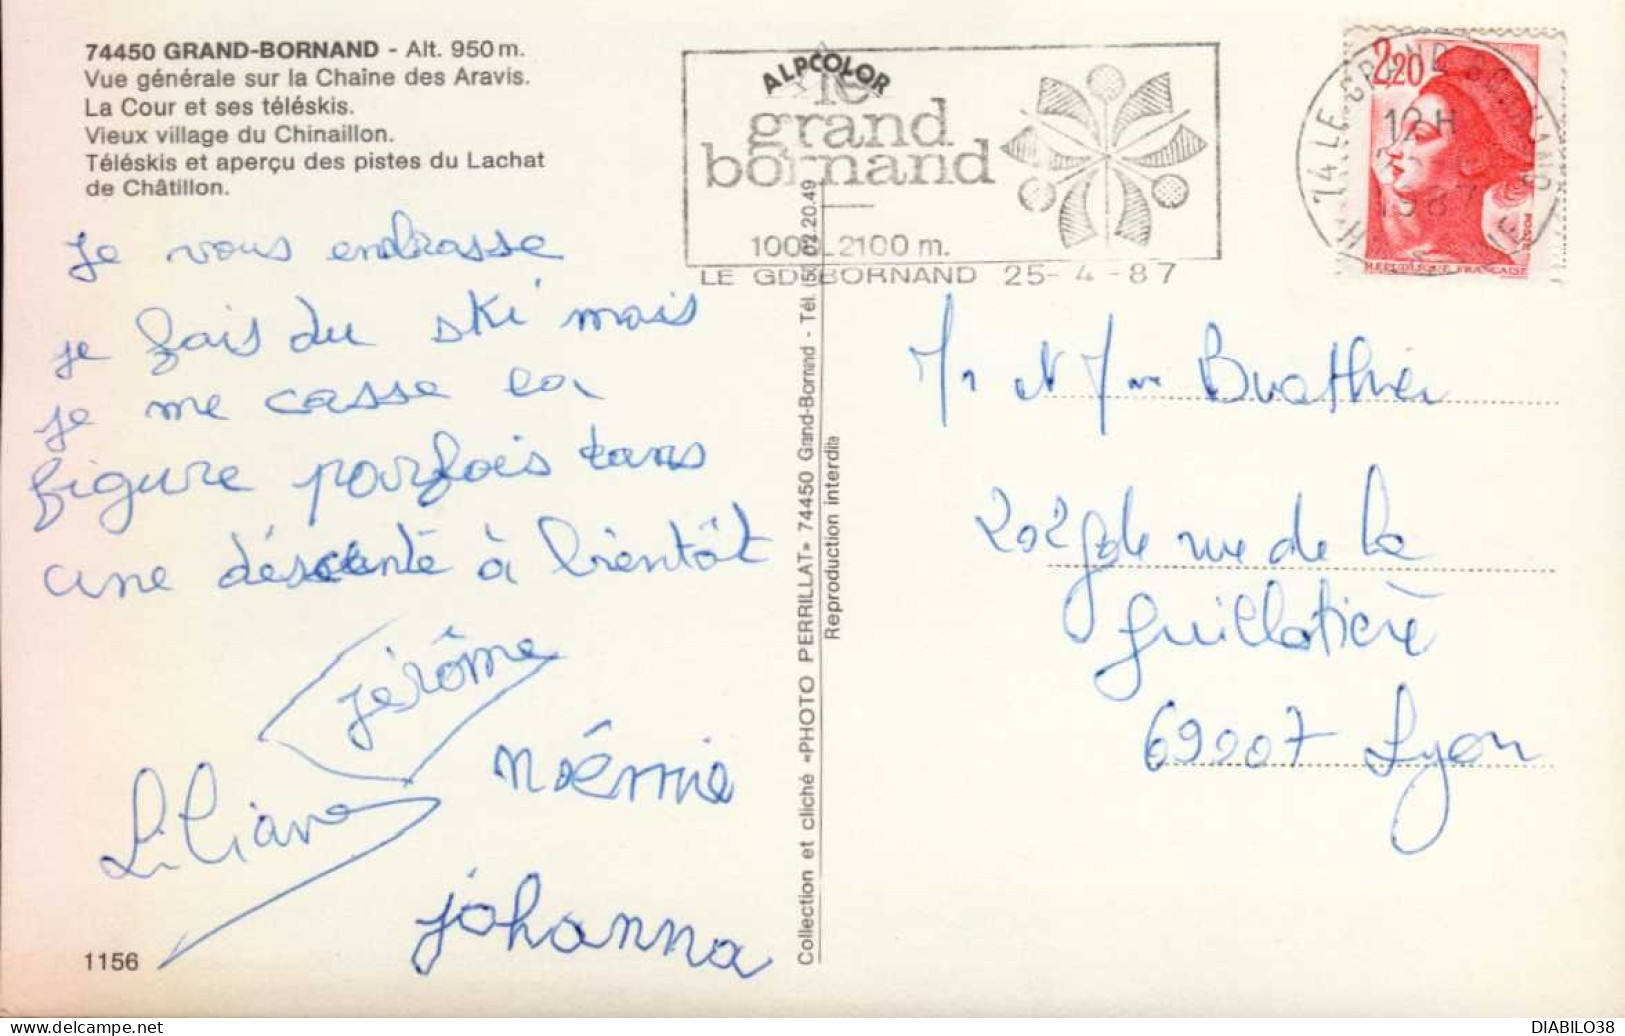 74450 GRAND-BORNAND - Alt. 950 m.
Vue générale sur la Chaîne des Aravis.
La Cour et ses téléskis.
Vieux village du Chinaillon.
Téléskis et aperçu des pistes du Lachat
de Châtillon.
je vous embrasse
je fais du ski mais
je me casse la
figure parfois dans
une déscente à bientôt
jérôme
Liliane
noémie
johanna
1156
ALPCOLOR
le
grand
bornand
1000-2100 m.
LE GD-BORNAND 25-4-87
Collection et cliché «PHOTO PERRILLAT» 74450 Grand-Bornand - Tél. (50) 02.20.49
Reproduction interdite
2,20
RÉPUBLIQUE FRANÇAISE
POSTES
74 LE GRAND BORNAND
12 H
1987
Mr Mme Buathier
202 gde rue de la
guillotière
69007 Lyon
DIABILO38